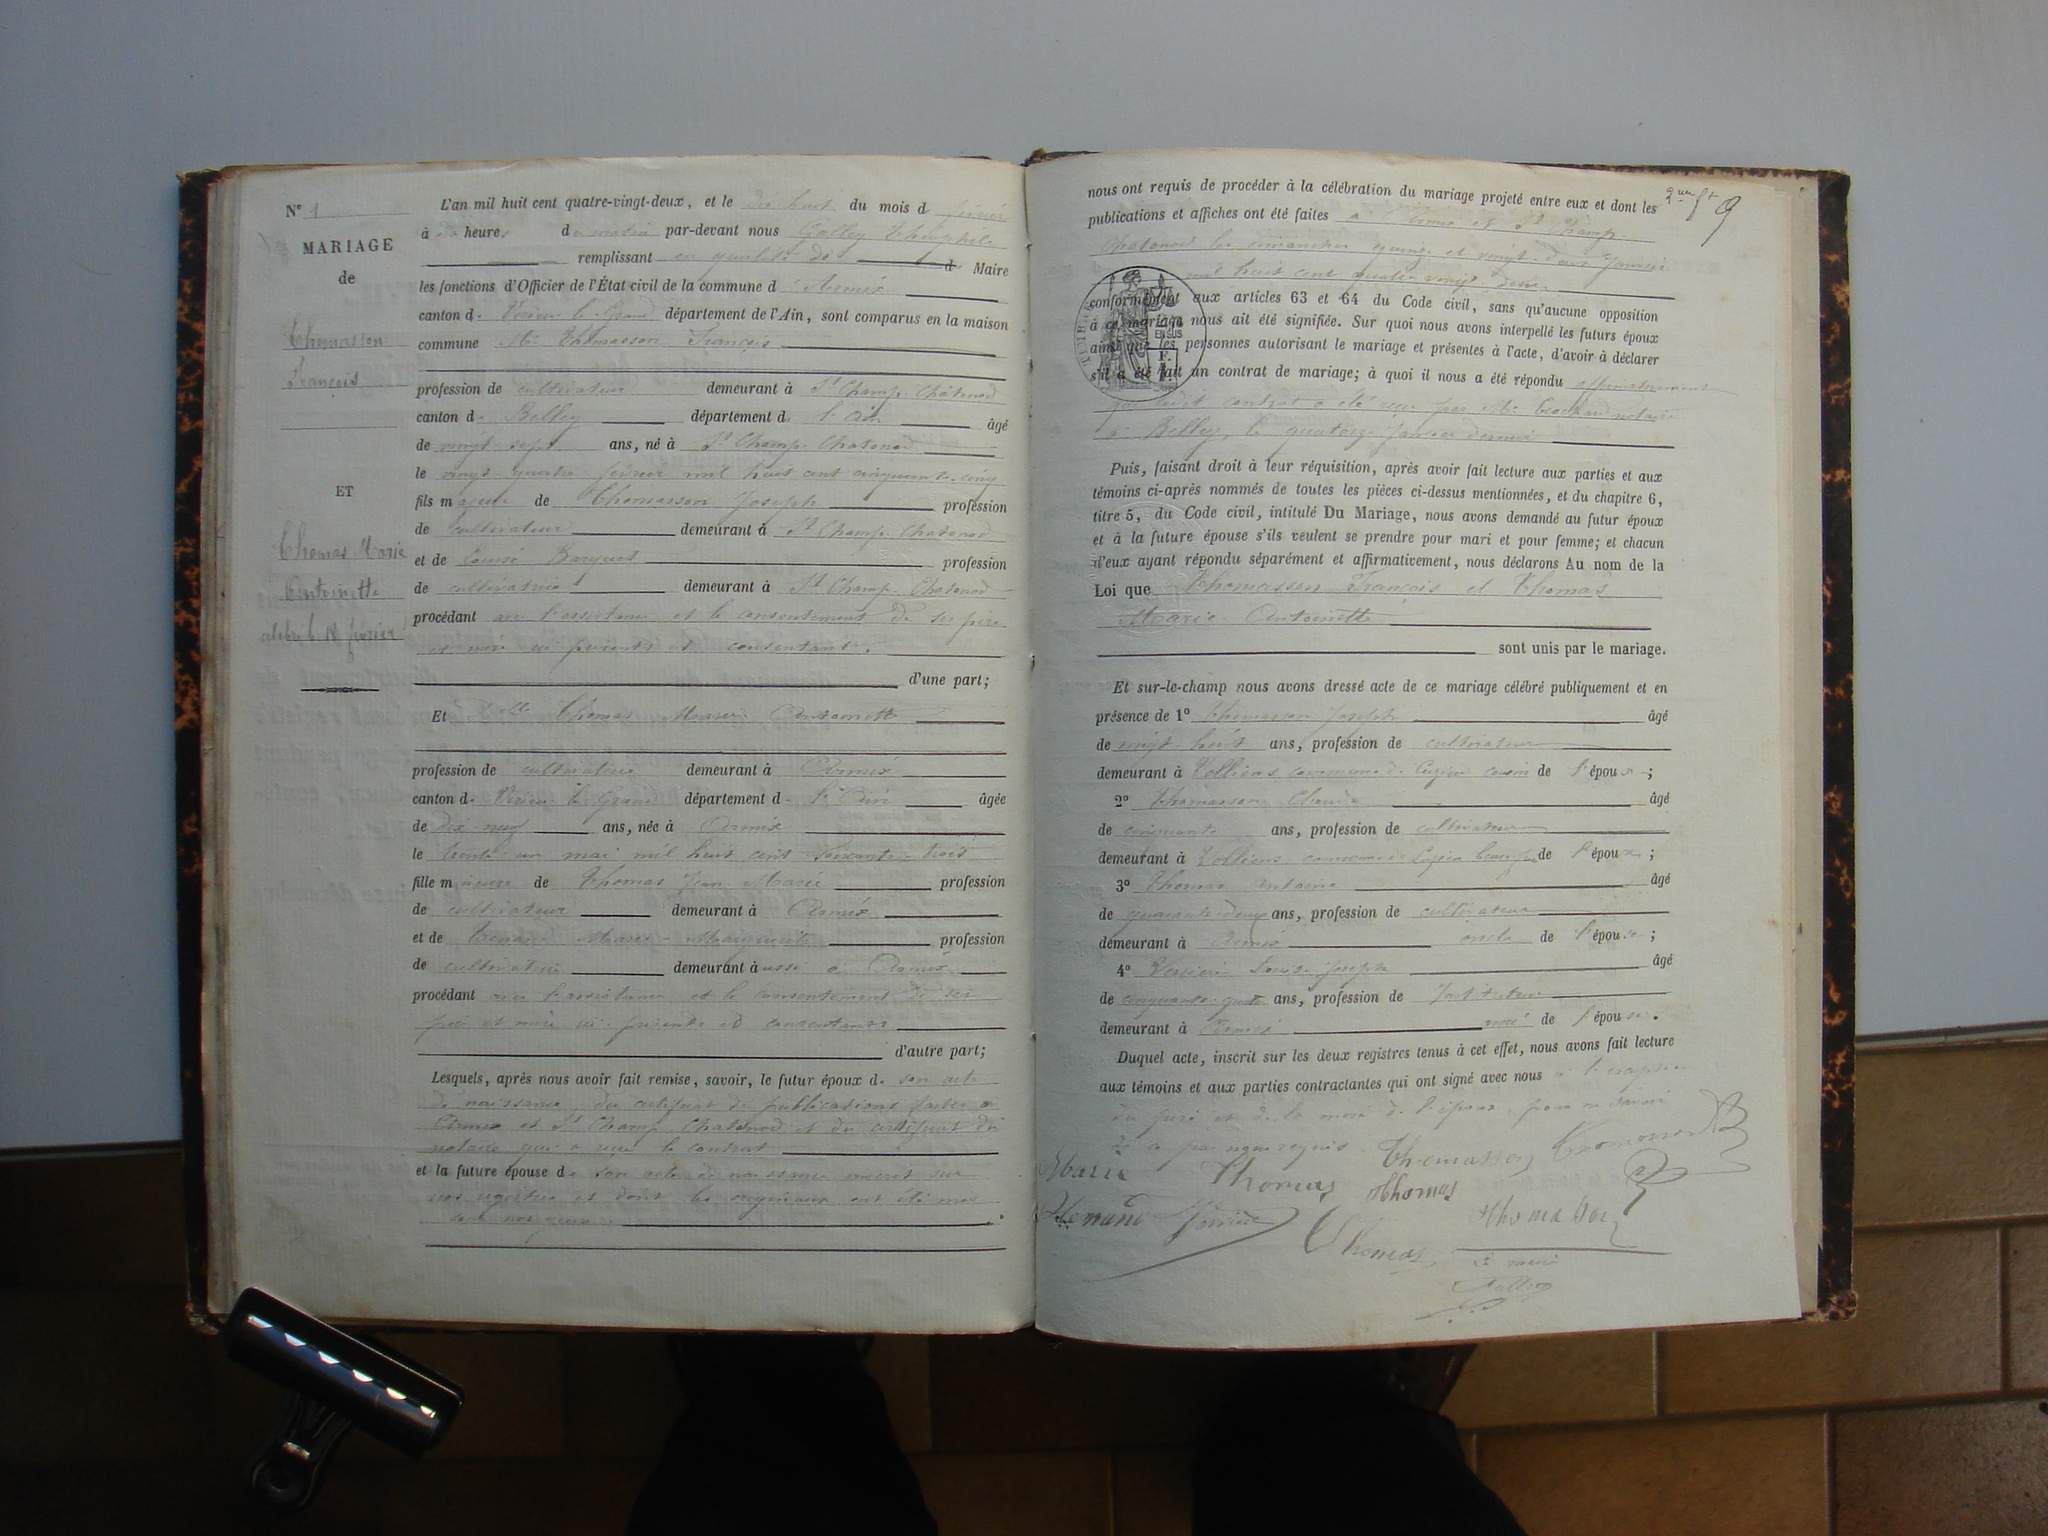 N° 1
MARIAGE
de
Thomasson
François
ET
Thomas Marie
Antoinette
célébré le 18 février
L'an mil huit cent quatre-vingt-deux, et le dix huit du mois d février
à heures d matin par-devant nous Galley Théophile
remplissant en qualité de d Maire
les fonctions d'Officier de l'État civil de la commune d Armix
canton d Virieu le Grand département de l'Ain, sont comparus en la maison
commune Mr Thomasson François
profession de cultivateur demeurant à St Champ Chatonod
canton d Belley département d l'Ain âgé
de vingt-sept ans, né à St Champ Chatonod
le vingt-quatre février mil huit cent cinquante-cinq
fils majeur de Thomasson Joseph profession
de cultivateur demeurant à St Champ Chatonod
et de Louise profession
de cultivatrice demeurant à St Champ Chatonod
procédant avec l'assistance et le consentement de ses père
et mère ici présents et consentant.
d'une part;
Et Melle Thomas Marie Antoinette
profession de cultivatrice demeurant à Armix
canton d Virieu le Grand département d l'Ain âgée
de dix-neuf ans, née à Armix
le trente un mai mil huit cent soixante-trois
fille mineure de Thomas Jean-Marie profession
de cultivateur demeurant à Armix
et de Marie-Marguerite profession
de cultivatrice demeurant à aussi à Armix
procédant avec l'assistance et le consentement de ses
père et mère ici présents et consentants
d'autre part;
Lesquels, après nous avoir fait remise, savoir, le futur époux d son acte
de naissance, du certificat de publications faites à
Armix et St Champ Chatonod et du certificat du
notaire qui a reçu le contrat
et la future épouse d son acte de naissance inscrit sur
nos registres et dont les originaux ont été mis
sous nos yeux.
2me ft 9
nous ont requis de procéder à la célébration du mariage projeté entre eux et dont les
publications et affiches ont été faites à Armix et St Champ-
Chatonod les dimanches quinze et vingt-deux Janvier
mil huit cent quatre vingt deux
conformément aux articles 63 et 64 du Code civil, sans qu'aucune opposition
à ce mariage nous ait été signifiée. Sur quoi nous avons interpellé les futurs époux
ainsi que les personnes autorisant le mariage et présentes à l'acte, d'avoir à déclarer
s'il a été fait un contrat de mariage; à quoi il nous a été répondu affirmativement
que ledit contrat a été reçu par Me notaire
à Belley, le quatorze Janvier dernier
Puis, faisant droit à leur réquisition, après avoir fait lecture aux parties et aux
témoins ci-après nommés de toutes les pièces ci-dessus mentionnées, et du chapitre 6,
titre 5, du Code civil, intitulé Du Mariage, nous avons demandé au futur époux
et à la future épouse s'ils veulent se prendre pour mari et pour femme; et chacun
d'eux ayant répondu séparément et affirmativement, nous déclarons Au nom de la
Loi que Thomasson François et Thomas
Marie-Antoinette
sont unis par le mariage.
Et sur-le-champ nous avons dressé acte de ce mariage célébré publiquement et en
présence de 1° Thomasson Joseph âgé
de vingt-huit ans, profession de cultivateur
demeurant à Volliens commune de Cuzieu cousin de l'époux;
2° Thomasson Claude âgé
de cinquante ans, profession de cultivateur
demeurant à Volliens commune de l'époux;
3° Thomas Antoine âgé
de quarante-deux ans, profession de cultivateur
demeurant à Armix oncle de l'épouse;
4° Louis Joseph âgé
de cinquante-quatre ans, profession de Instituteur
demeurant à Armix ami de l'épouse.
Duquel acte, inscrit sur les deux registres tenus à cet effet, nous avons fait lecture
aux témoins et aux parties contractantes qui ont signé avec nous à l'exception
du père et de la mère de l'époux, pour ne savoir
de ce par nous requis. Thomasson
Marie Thomas Thomas
Thomas
Le maire
Galley